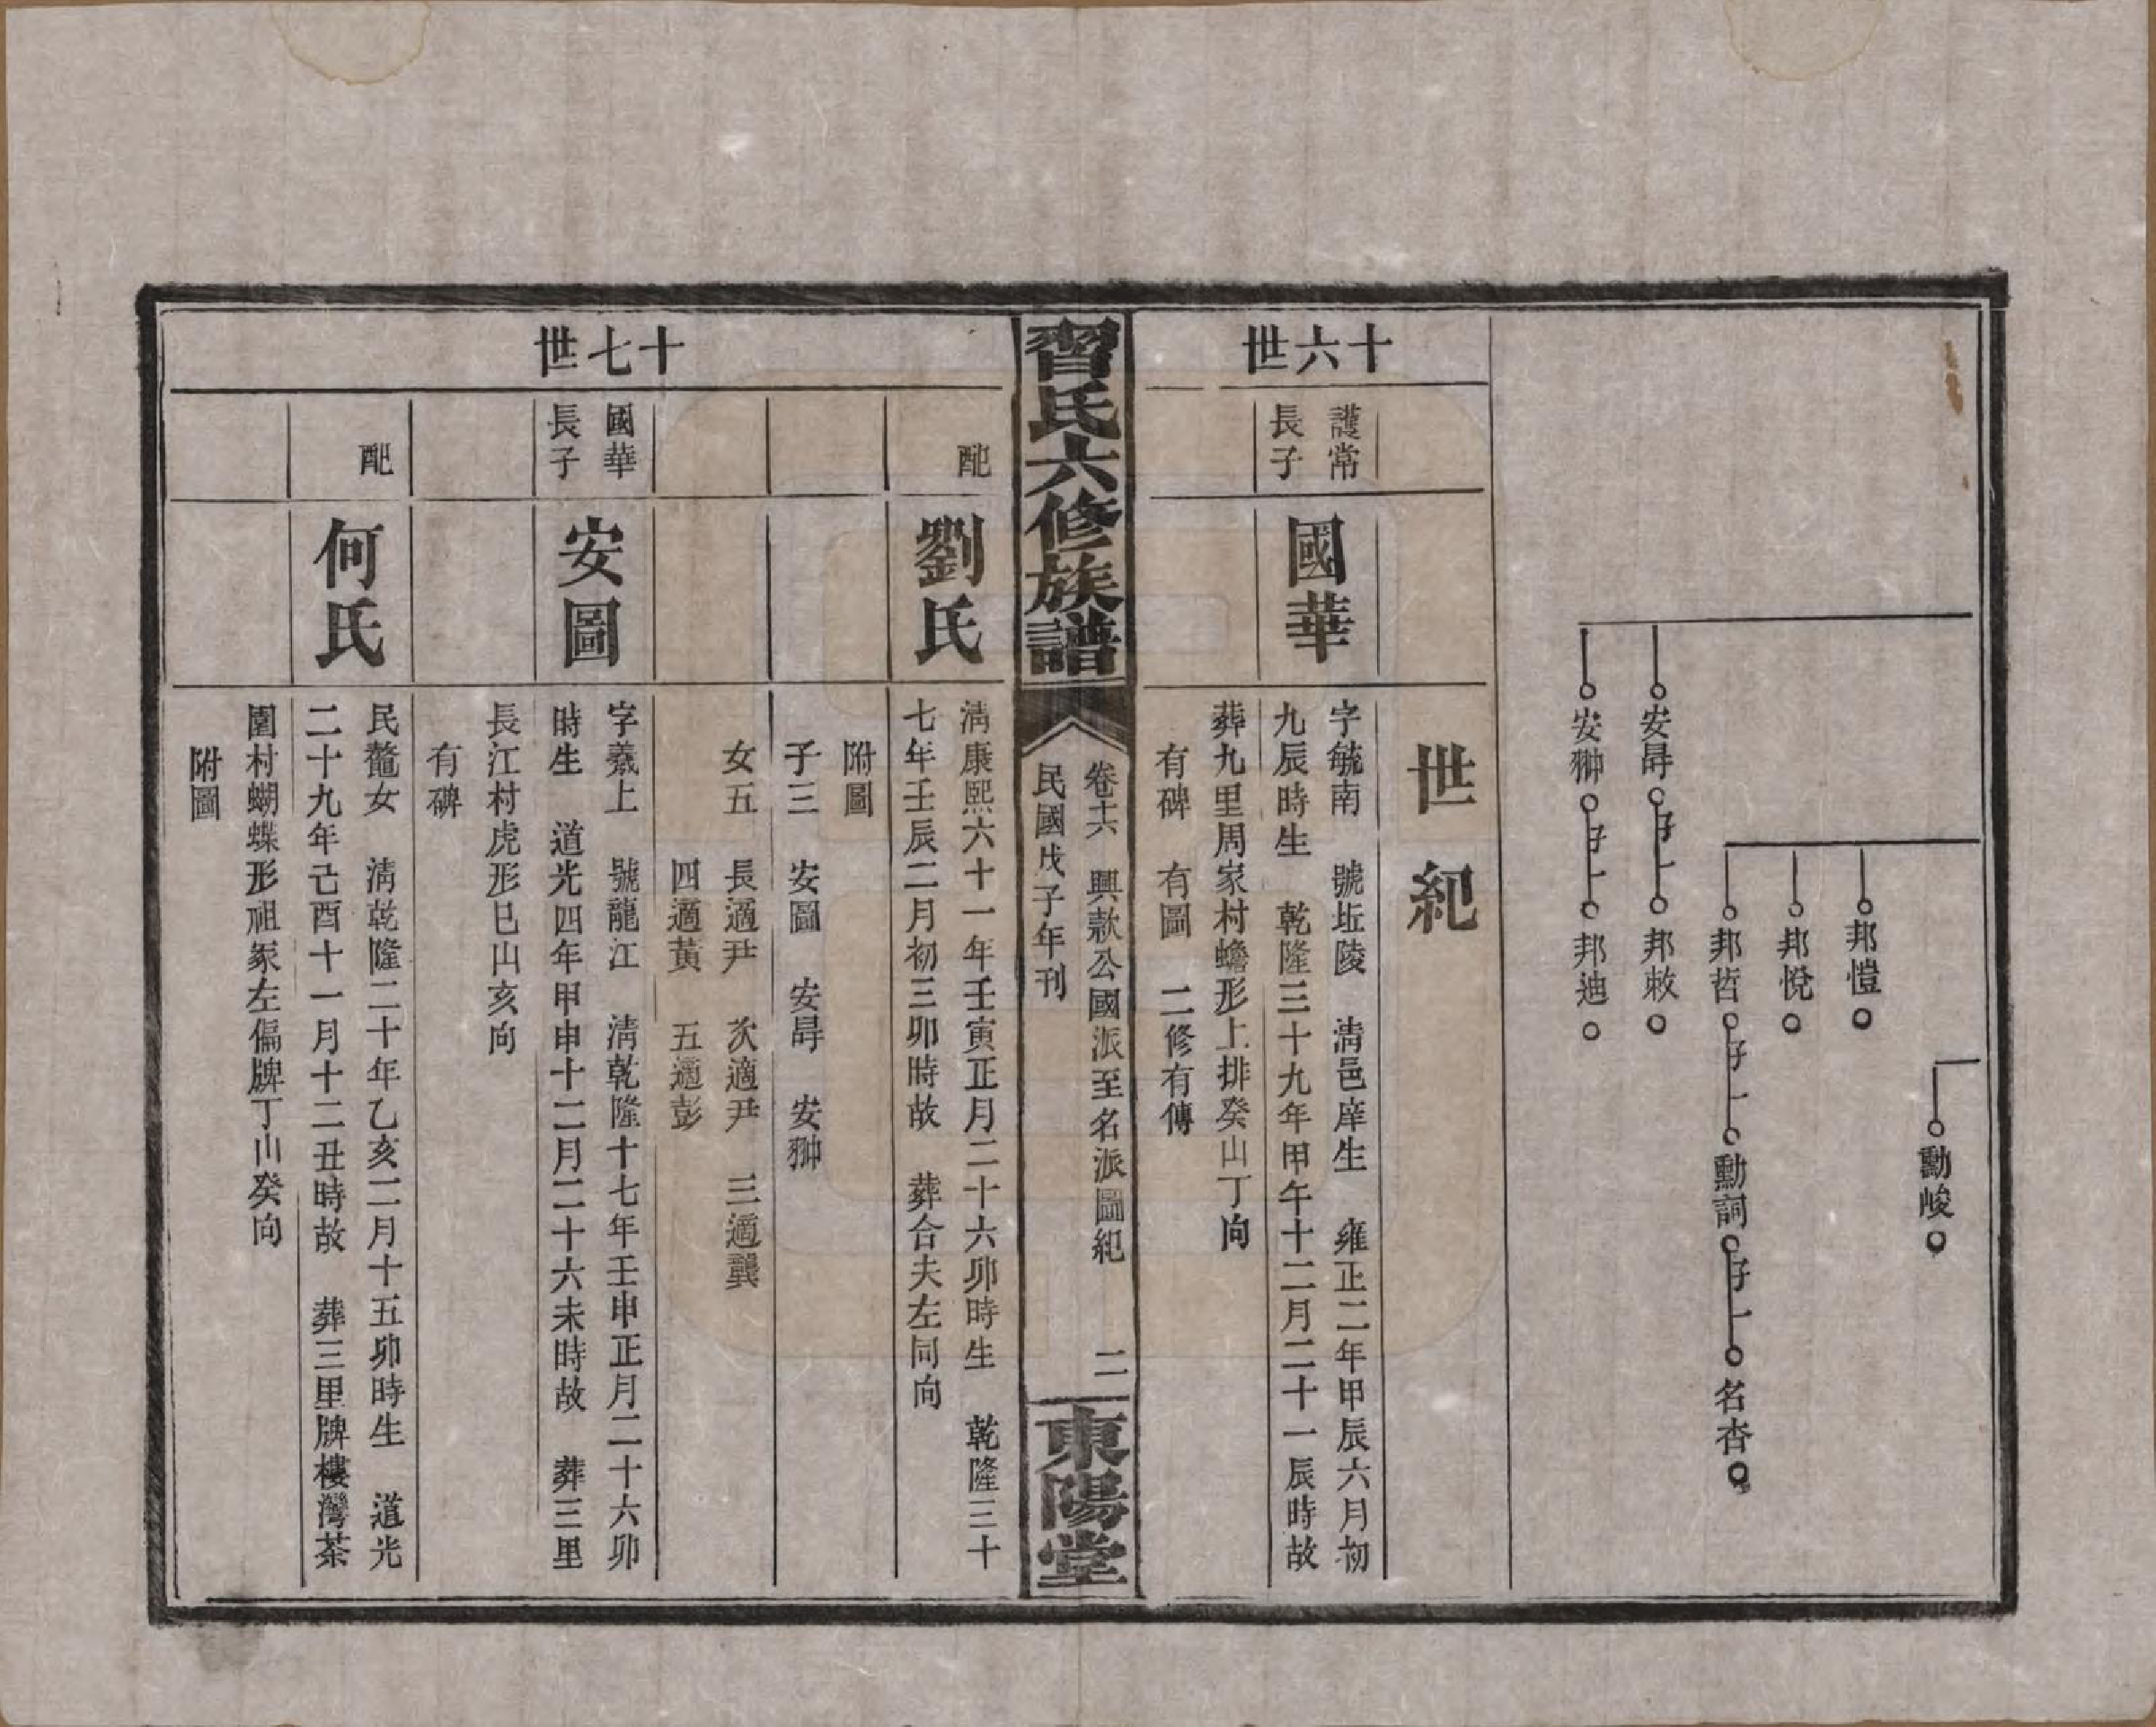 勳峻
邦愷
邦悅
邦哲 子一 勳詞 子一 名杏
安㝵 子一 邦敉
安翀 子一 邦迪
世紀
十六世
護常
長子
國華
字毓南 號坵陵 清邑庠生 雍正二年甲辰六月初
九辰時生 乾隆三十九年甲午十二月二十一辰時故
葬九里周家村蟾形上排癸山丁向
有碑 有圖 二修有傳
習氏六修族譜
卷十六 興款公國派至名派圖紀 二
民國戊子年刊
東陽堂
十七世
配
劉氏
清康熙六十一年壬寅正月二十六卯時生 乾隆三十
七年壬辰二月初三卯時故 葬合夫左同向
附圖
子三 安圖 安㝵 安翀
女五 長適尹 次適尹 三適龔
四適黃 五適彭
國華
長子
安圖
字羲上 號龍江 清乾隆十七年壬申正月二十六卯
時生 道光四年甲申十二月二十六未時故 葬三里
長江村虎形巳山亥向
有碑
配
何氏
民鼇女 清乾隆二十年乙亥二月十五卯時生 道光
二十九年己酉十一月十二丑時故 葬三里牌樓灣茶
園村蝴蝶形祖冢左偏牌丁山癸向
附圖